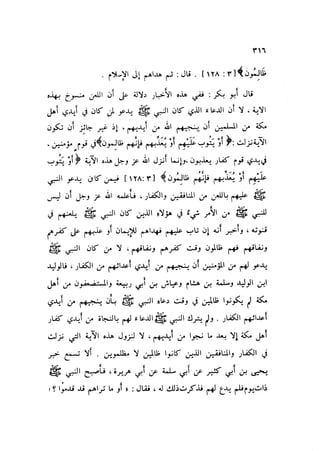 ٣١٦
ظَالِمُونَ﴾ [٣: ١٢٨] . قال: ثم هداهم إلى الإسلام .
قال أبو بكر: ففي هذه الأخبار دلالة على أن اللعن منسوخ بهذه
الآية، لا أن الدعاء الذي كان النبي ﷺ يدعو لمن كان في أيدي أهل
مكة من المسلمين أن ينجيهم الله من أيديهم، إذ غير جائز أن تكون
الآية نزلت: ﴿أَوْ يَتُوب عَلَيْهِم أَوْ يُعَذِّبهم فَإنَّهم ظالِمون﴾ في قوم مؤمنين،
في يدي قوم كفار يعذبون، وإنما أنزل الله عز وجل هذه الآية ﴿ أَوْ يَتُوبَ
عَلَيْهِم أَوْ يُعَذِّبهم فَإنَّهُم ظَالِمُونَ﴾ [٣: ١٢٨] فيمن كان يدعو النبي
ﷺ عليهم باللعن من المنافقين والكفار، فأعلمه الله عز وجل أن ليس
للنبي ﷺ من الأمر شيء في هؤلاء الذين كان النبي ﷺ يلعنهم في
قنوته، وأخبر أنه إن تاب عليهم فهداهم للإيمان أو عذبهم على كفرهم
ونفاقهم فهم ظالمون وقت كفرهم ونفاقهم، لا من كان النبي ﷺ
يدعو لهم من المؤمنين أن ينجيهم من أيدي أعدائهم من الكفار، فالوليد
ابن الوليد وسلمة بن هشام وعياش بن أبي ربيعة والمستضعفون من أهل
مكة لم يكونوا ظالمين في وقت دعاء النبي ﷺ بأن ينجيهم من أيدي
أعدائهم الكفار. ولم يترك النبي ﷺ الدعاء لهم بالنجاة من أيدي كفار
أهل مكة إلا بعد ما نجوا من أيديهم، لا لنزول هذه الآية التي نزلت
في الكفار والمنافقين الذين كانوا ظالمين لا مظلومين. ألا تسمع خبر
يحيى بن أبي كثير عن أبي سلمة عن أبي هريرة، فأصبح النبي ﷺ
ذات يوم فلم يدع لهم فذكرت ذلك له، فقال: « أو ما تراهم قد قدموا؟ »